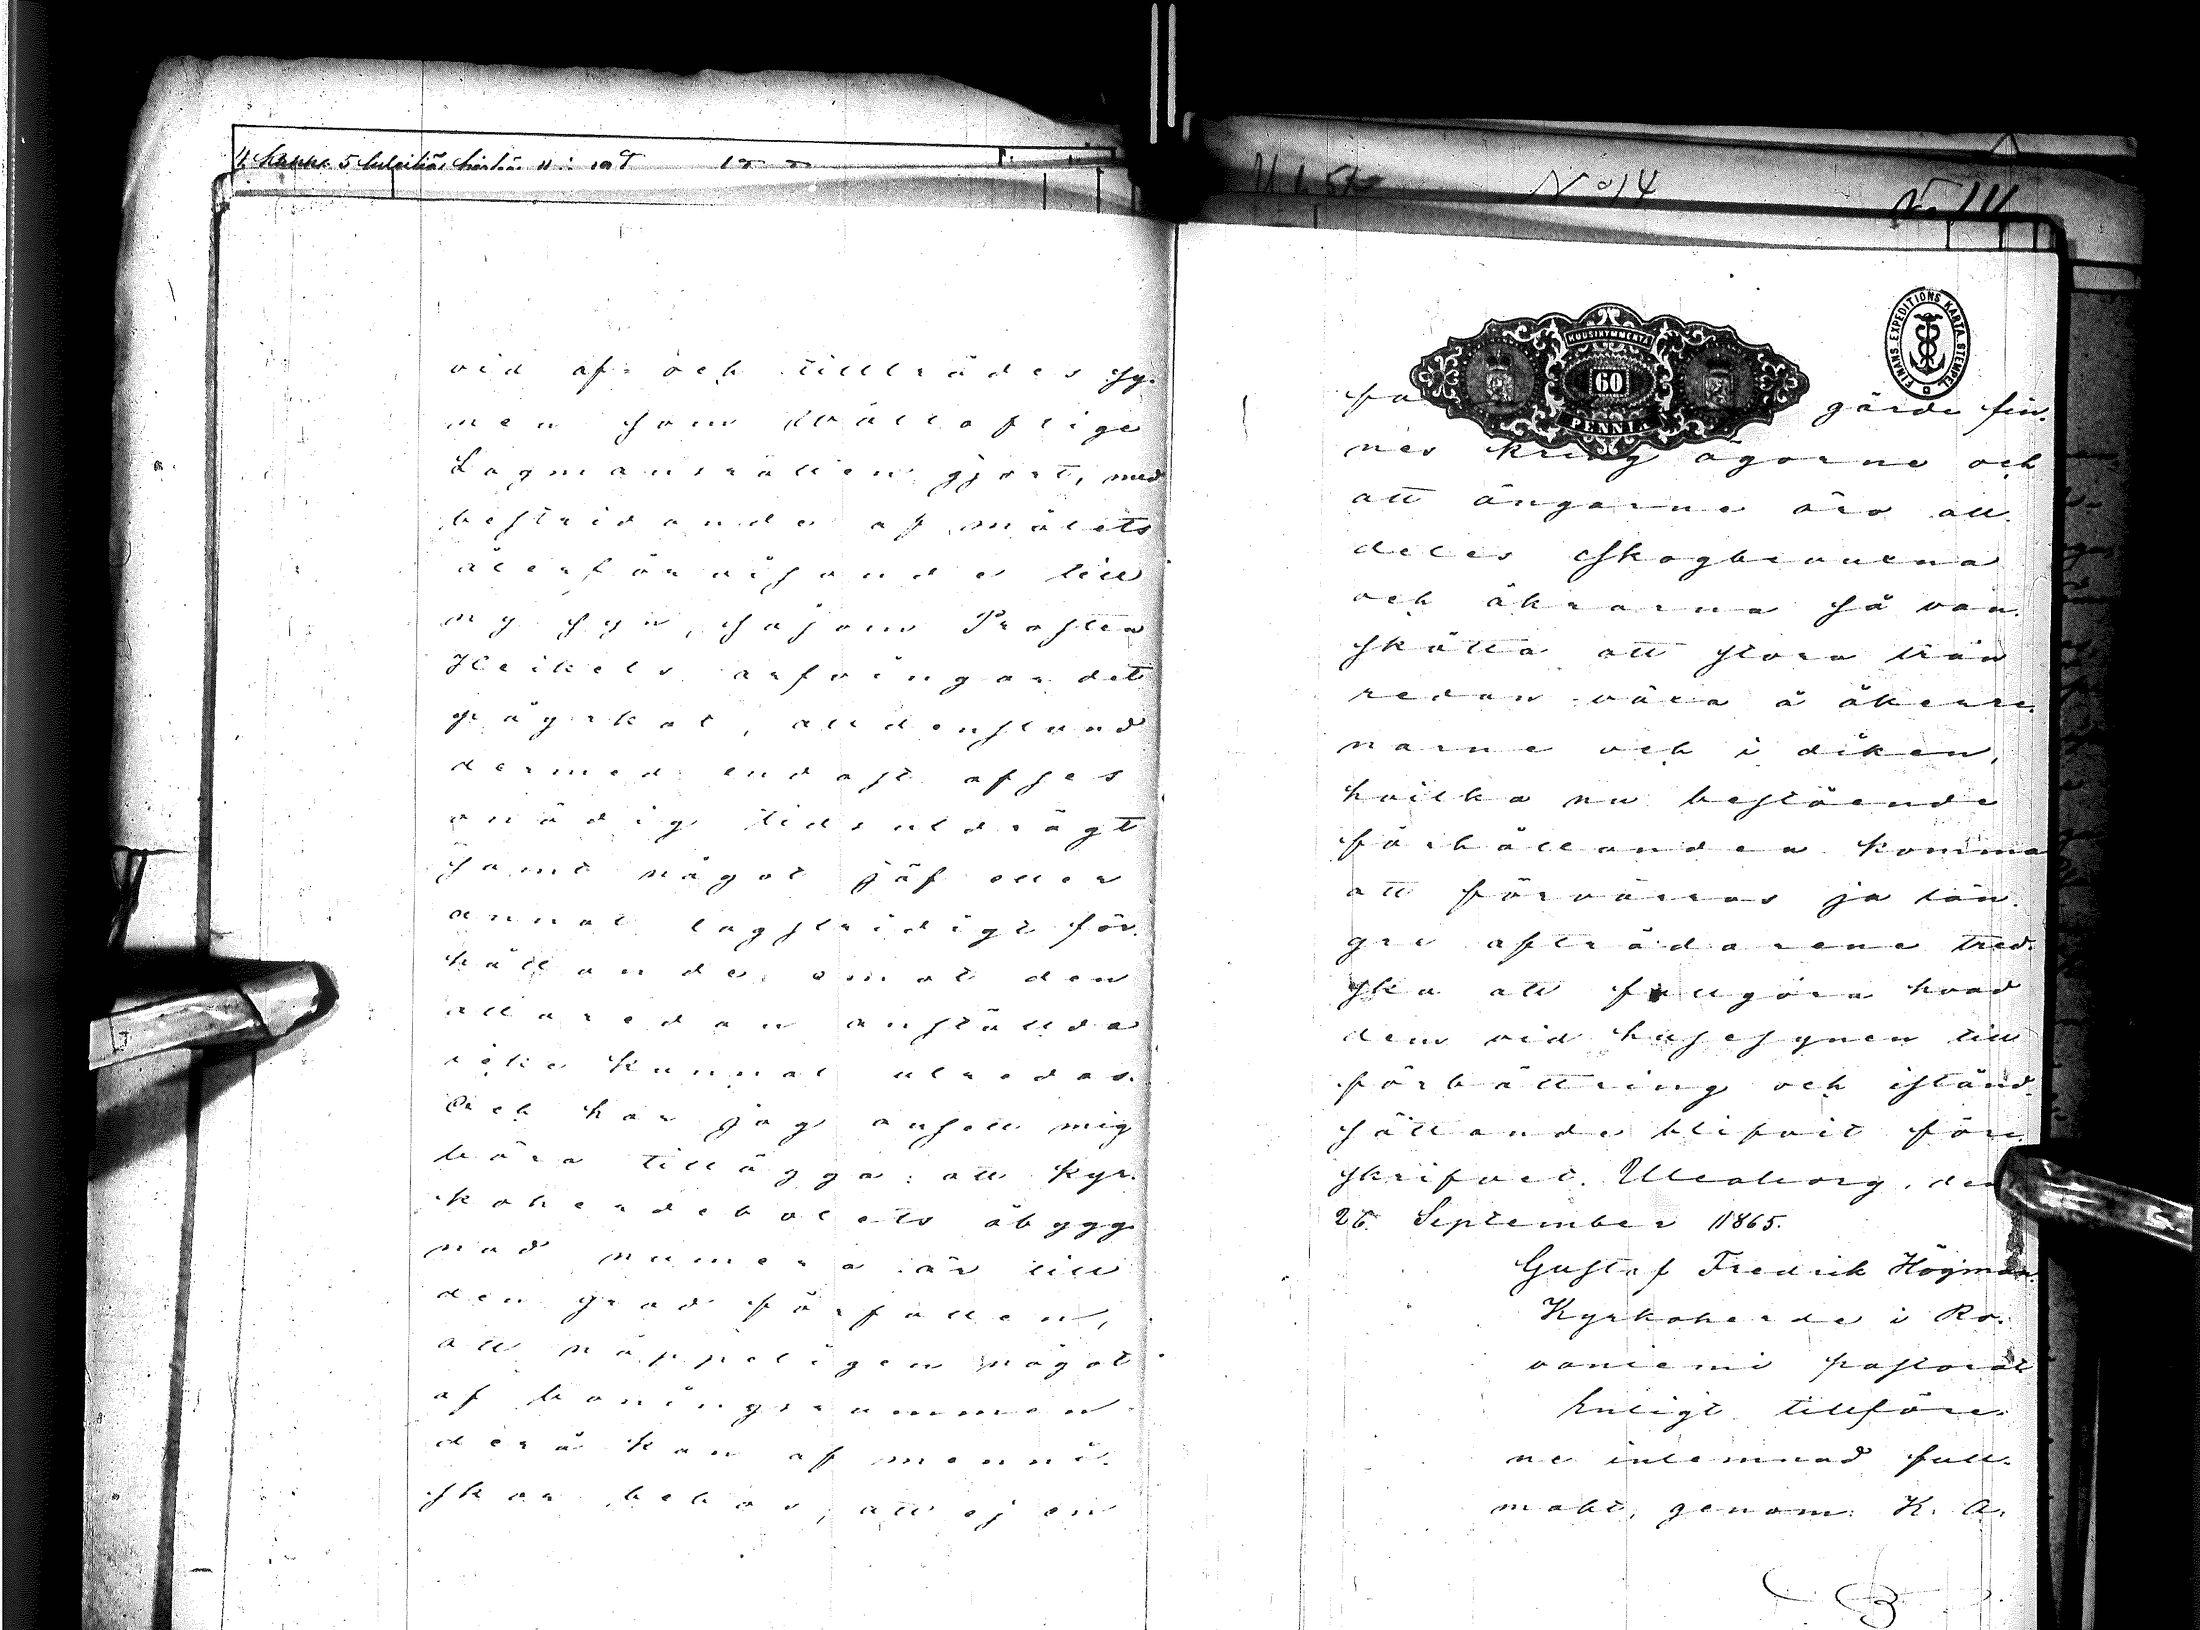 N:o 14
vid af- och tillträdes sy-
nen som Wällofliga
Lagmansrätten gjort, med
bestridande af målets
återförvisande till
ny syn, såsom Prosten
Heikels arfvingar det
påyrkat, alldenstund
dermed endast afses
onödig tidsutdrägt
samt något jäf eller
annat lagstridigt för-
hållande emot den
allaredan anställda
icke kunnat utredas.
Och har jag ansett mig
böra tillägga: att Kyr-
koherdebolets åbygg-
nad numera är till
den grad förfallen,
att näppeligen något
af boningsrummen
derå kan af menni-
skor bebos, att ej en
FINANS. EXPEDITIONS KARTA STEMPEL
KUUSIKYMMENTÄ
60
PENNIÄ
gärde fin-
nes kring ägorne och
att ängarne äro all-
deles skogbevuxna
och åkrarna så van-
skötta att stora trän
redan växa å åkerre-
narne och i diken,
hvilka nu bestående
förhållanden komma
att förvärras ju län-
gre afträdarene tred-
ska att fullgöra hvad
dem vid husesynen till
förbättring och istånd-
sättande blifvit före-
skrifvet. Uleåborg, den
26 September 1865.
Gustaf Fredrik Högman
Kyrkoherde i Ro-
vaniemi pastorat
Enligt tillföre-
ne inlemnad full-
makt, genom: K. A.